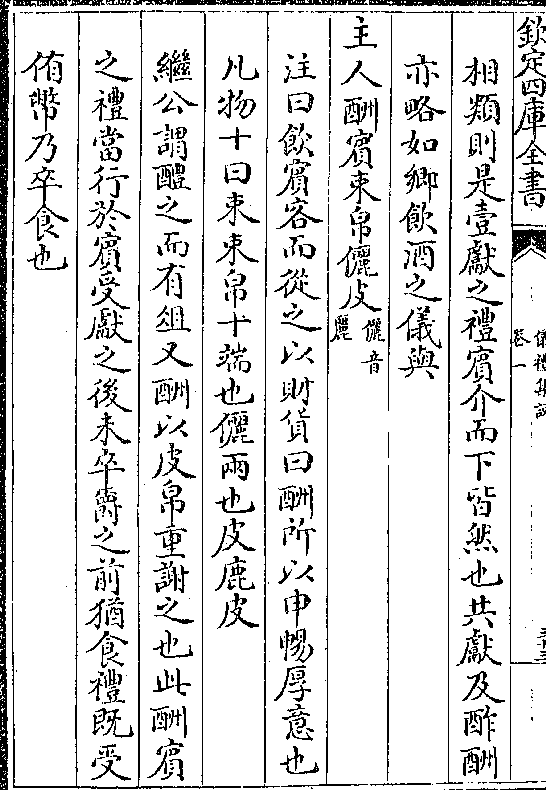 欽定四庫全書
儀禮集說
卷一
相類則是壹獻之禮賓介而下皆然也其獻及酢酬
亦略如鄉飲酒之儀與
主人酬賓束帛儷皮儷音麗
注曰飲賓客而從之以財貨曰酬所以申暢厚意也
凡物十曰束束帛十端也儷兩也皮鹿皮
繼公謂醴之而有俎又酬以皮帛重謝之也此酬賓
之禮當行於賓受獻之後未卒爵之前猶食禮既受
侑幣乃卒食也